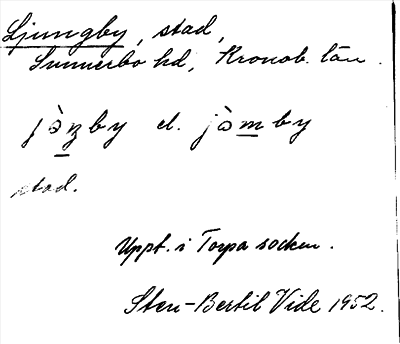 Ljungby, stad,
Sunnerbo hd, Kronob. län.
jə̀ŋby el. jə̀mby
stad.
Uppt. i Torpa socken.
Sten-Bertil Vide 1952.